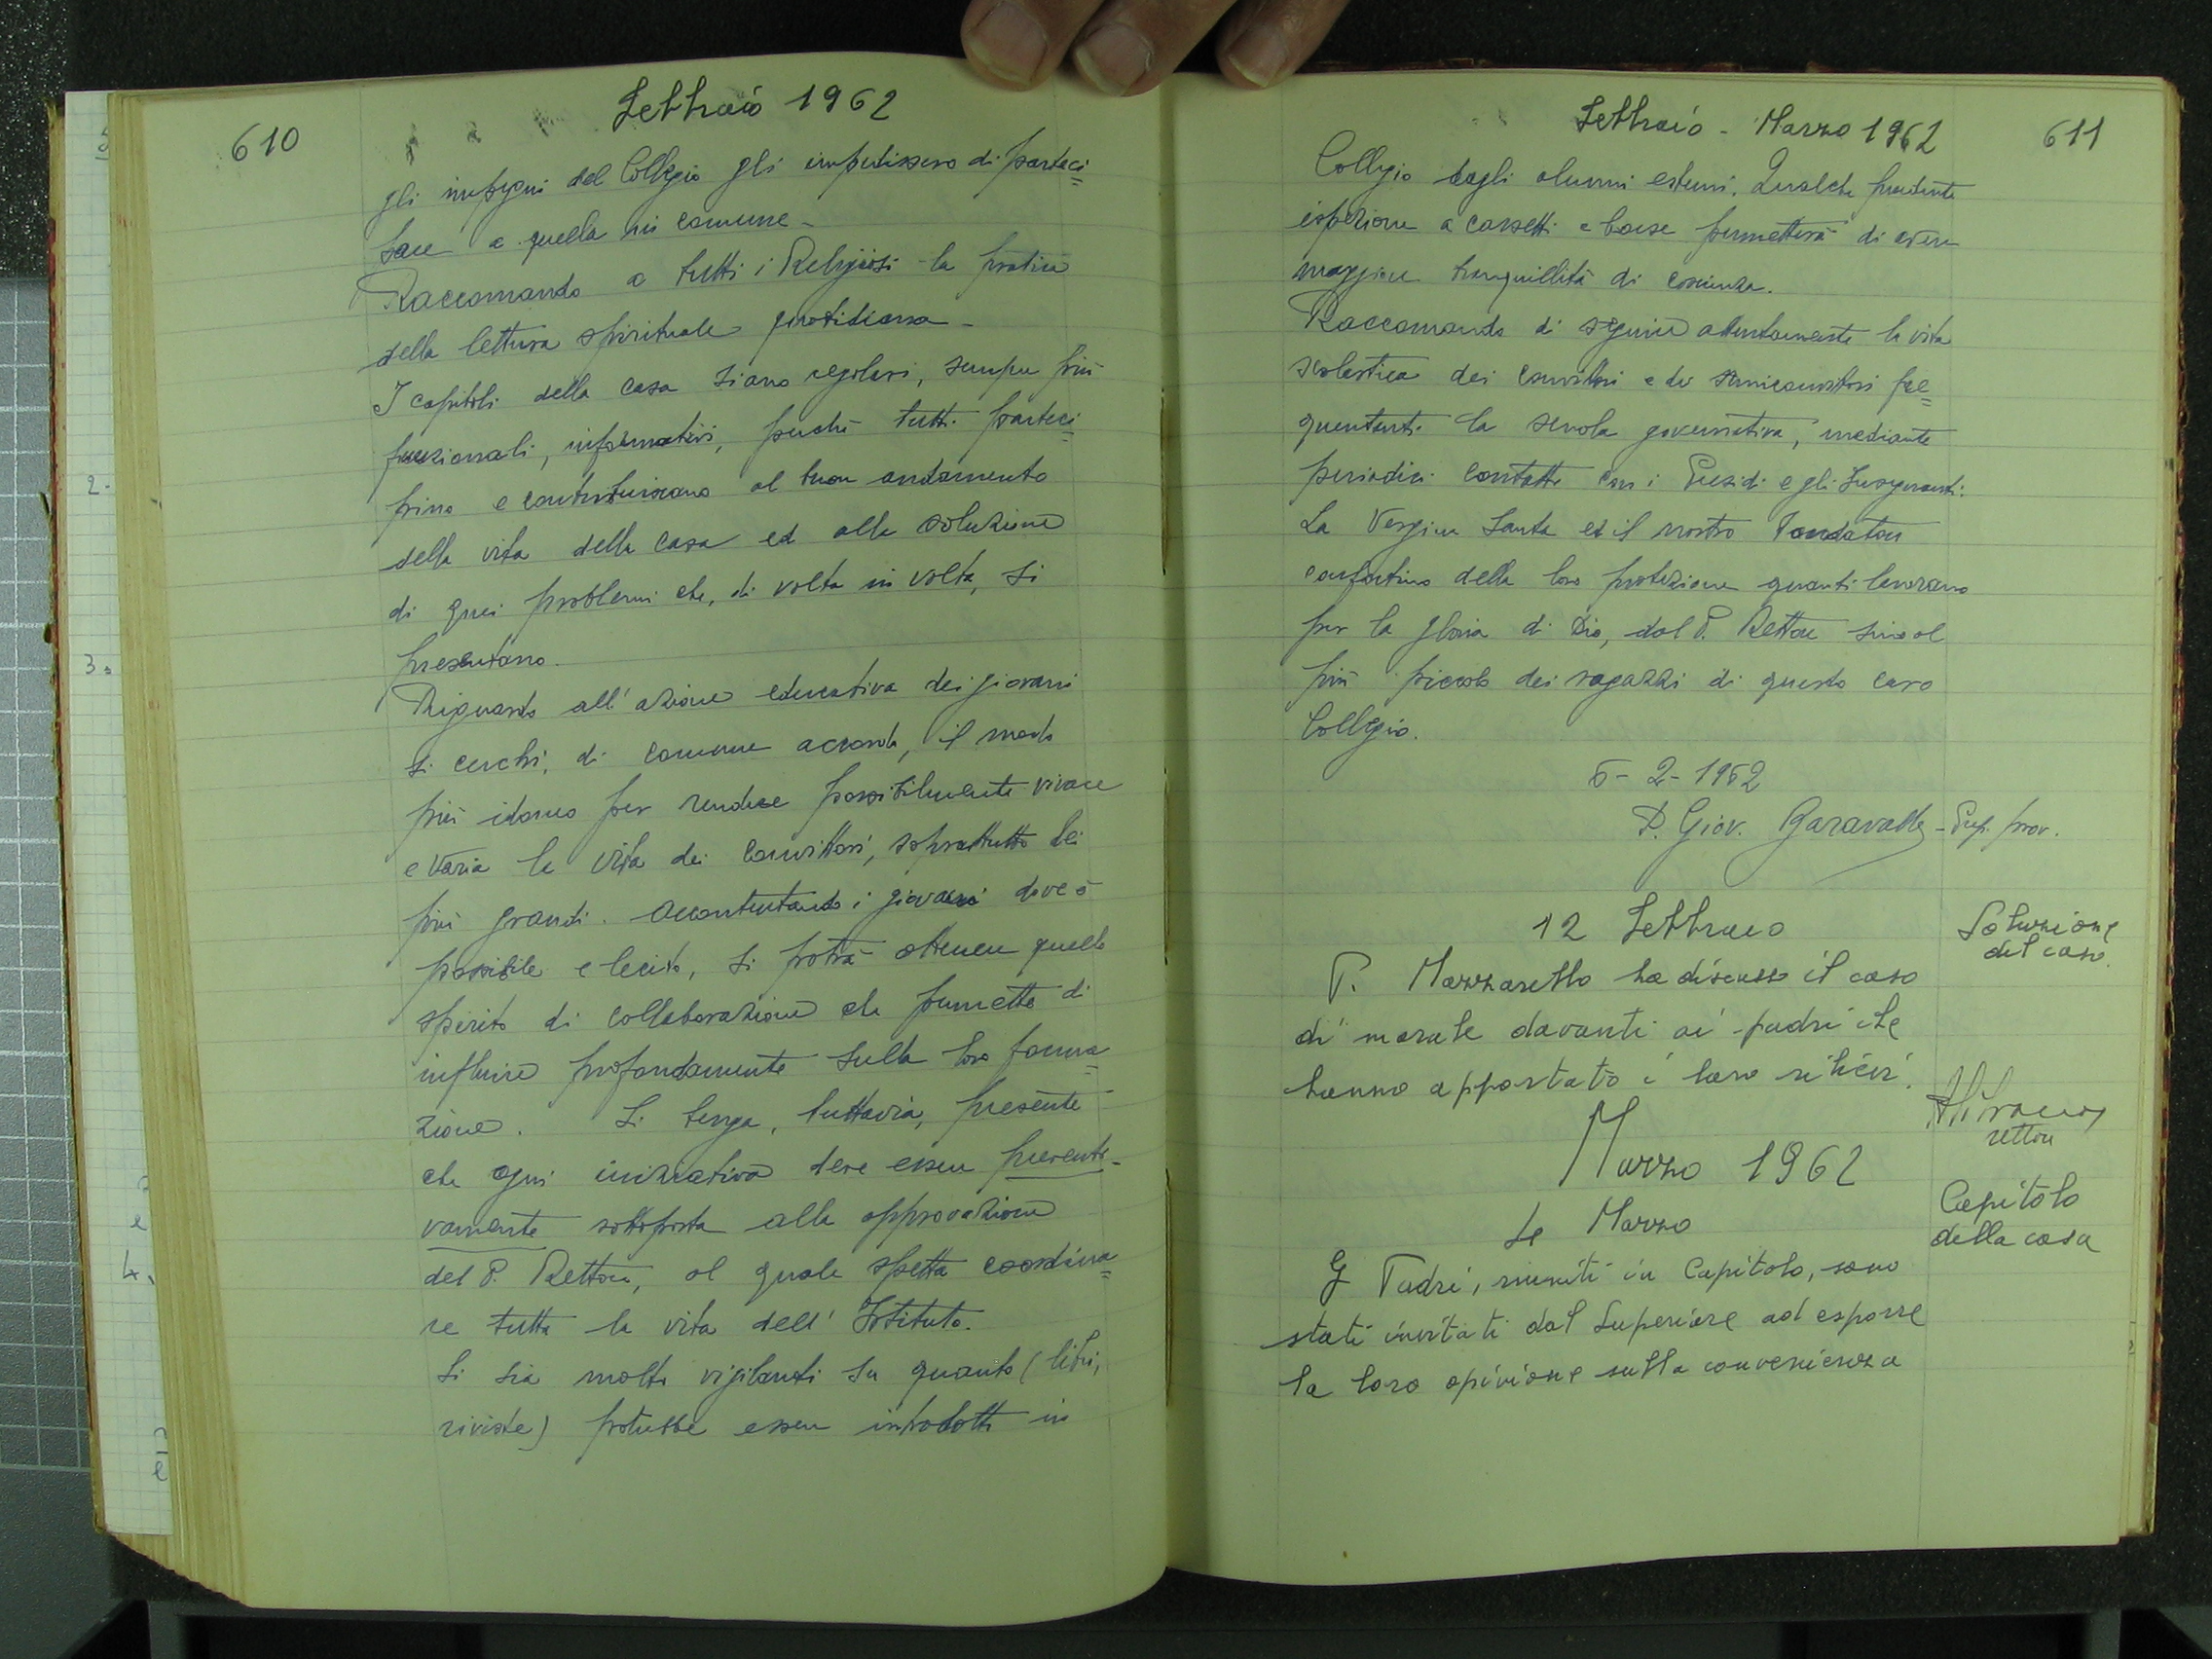 610
Febbraio 1962
gli impegni del Collegio gli impedissero di parteci=
pare a quella in comune -
Raccomando a tutti i Religiosi la pratica
della lettura spirituale quotidiana -
I capitoli della casa siano regolari, sempre più
funzionali, informativi, perché tutti parteci=
pino e contribuiscano al buon andamento
della vita della casa ed alla soluzione
di quei problemi che, di volta in volta, si
presentano.
Riguardo all'azione educativa dei giovani
si cerchi, di comune accordo, il modo
più idoneo per rendere possibilmente vivace
e varia la vita dei Convittori, soprattutto dei
più grandi. Accontentando i giovani dove è
possibile e lecito, si potrà ottenere quello
spirito di collaborazione che permette di
influire profondamente sulla loro forma=
zione. Si tenga, tuttavia, presente
che ogni iniziativa deve essere preventi-
vamente sottoposta alla approvazione
del P. Rettore, al quale spetta coordina=
re tutta la vita dell'Istituto.
Si sia molto vigilanti su quanto (libri,
riviste) potrebbe essere introdotto in
2.
3.
4.
Febbraio - Marzo 1962
611
Collegio dagli alunni esterni. Qualche prudente
ispezione a cassetti e borse permetterà di avere
maggiore tranquillità di coscienza.
Raccomando di seguire attentamente la vita
scolastica dei convittori e dei semiconvittori fre=
quentanti la scuola governativa, mediante
periodici contatti con i Presidi e gli Insegnanti.
La Vergine Santa ed il nostro Fondatore
confortino della loro protezione quanti lavorano
per la gloria di Dio, dal P. Rettore sino al
più piccolo dei ragazzi di questo caro
Collegio.
6-2-1962
P. Giov. Garavalle - Prep. prov.
12 Febbraio
Soluzione
del caso.
P. Mazzarello ha discusso il caso
di morale davanti ai padri che
hanno apportato i loro
rettore
Marzo 1962
Marzo
Capitolo
della casa
I Padri, riuniti in Capitolo, sono
stati invitati dal Superiore ad esporre
la loro opinione sulla convenienza